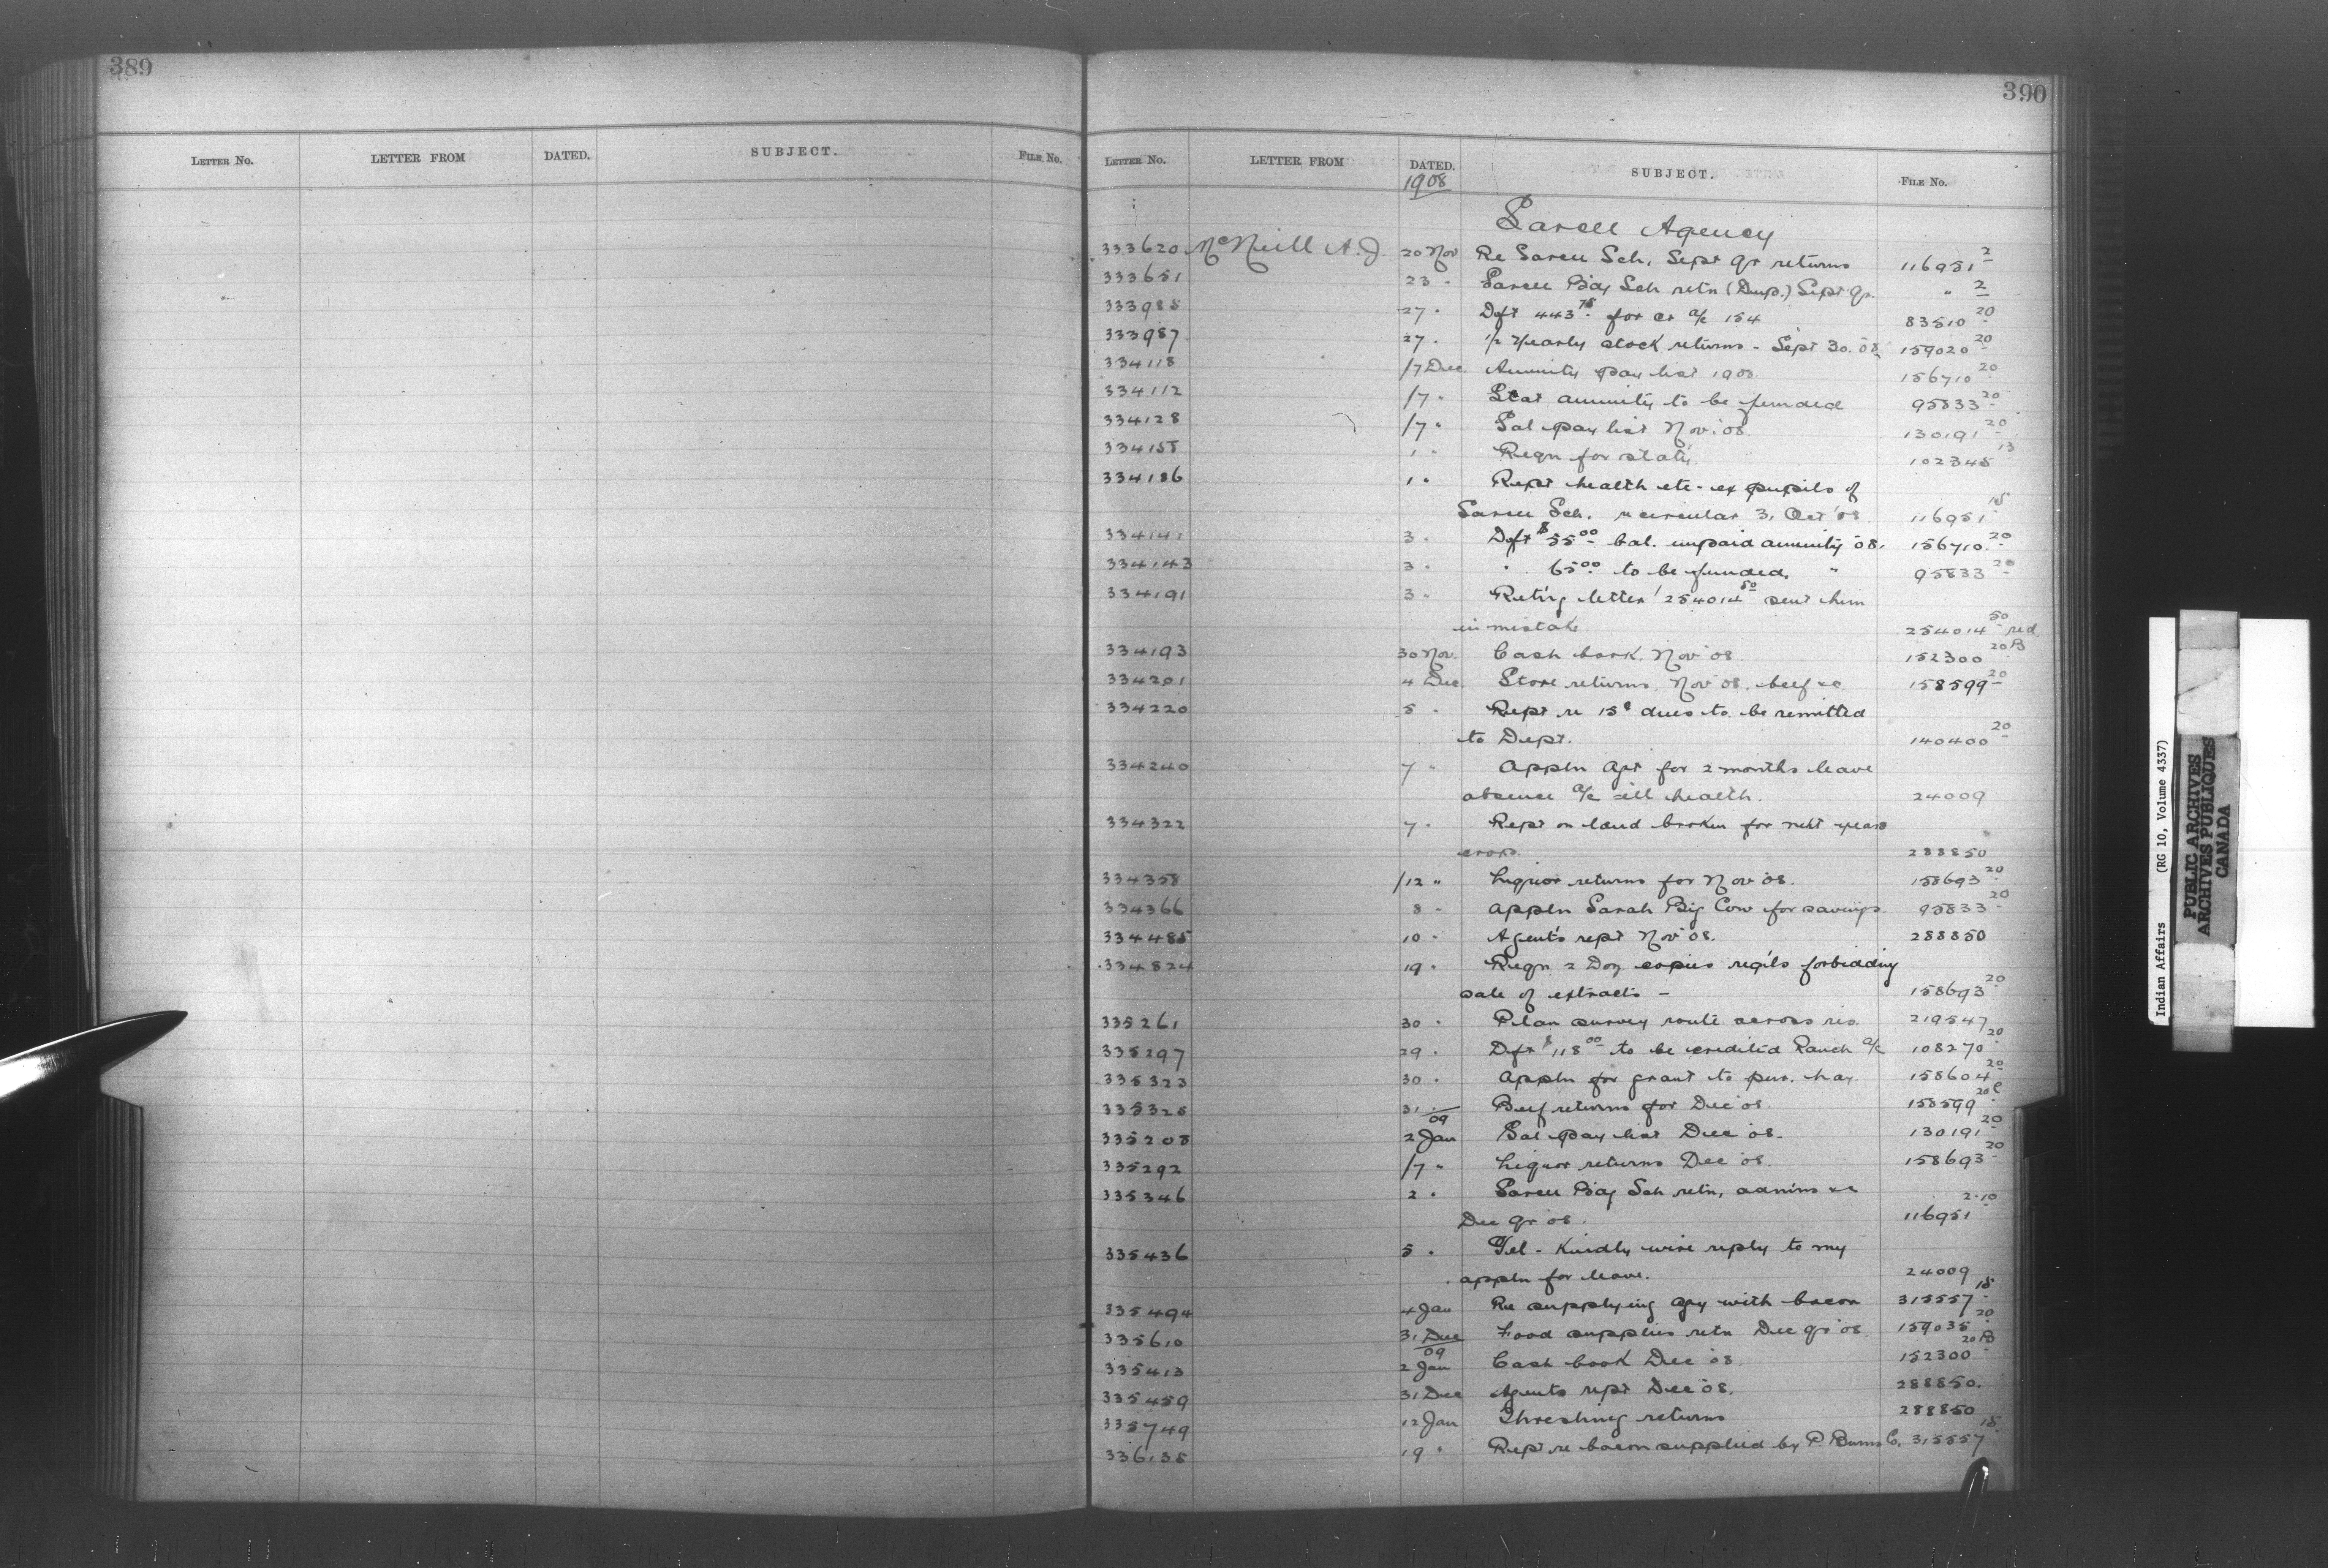 389
LETTER NO. LETTER FROM DATED. SUBJECT. FILE NO.
390
LETTER NO. LETTER FROM DATED. SUBJECT. FILE NO.
1908
Sarcee Agency
333620 McNeill A. J. 20 Nov Re Sarcee Sch. Sept qr returns 116951 2
333651 23 " Sarcee Bdg Sch retn (Dup.) Sept qr. " 2
333988 27 " Dft 443 75 for cr a/c 154 83510 20
333987 27 " 1/2 Yearly stock returns - Sept 30. 08 159020 20
334118 /7 Dec Annuity pay list 1908. 156710 20
334112 /7 " Stat annuity to be funded 95833 20
334128 /7 " Sal pay list Nov. 08. 130191 20
334155 1 " Reqn for staty. 102345 13
334186 1 " Rept health etc - ex pupils of
Sarcee Sch. re circular 31 Oct '08 116951 15
334141 3 " Dft $55 00 bal. unpaid annuity 08. 156710 20
334143 3 " " 65 00 to be funded. " 95833 20
334191 3 " Ret'ng letter 254014 50 sent him
in mistake 254014 50 red
334193 30 Nov. Cash book. Nov '08. 152300 20 B
334201 4 Dec. Store returns. Nov '08. beef &c 158599 20
334220 5 " Rept re 15 $ dues to be remitted
to Dept. 140400 20
334240 7 " Appln Agt for 2 months leave
absence a/c ill health. 24009
334322 7 " Rept on land broken for next years
crops. 288850
334358 /12 " Liquor returns for Nov '08. 158693 20
334366 8 " Appln Sarah Big Crow for savings. 95833 20
334485 10 " Agent's rept Nov '08. 288850
334824 19 " Reqn 2 Doz copies reg'ls forbidding
sale of extracts - 158693 20
335261 30 " Plan survey route across res. 219547
335297 29 " Dft $118 00 to be credited Ranch a/c 108270 20
335323 30 " Appln for grant to pur. hay. 158604 20
335328 31 Beef returns for Dec '08. 158599 20 C
335208 09 2 Jan Sal pay list Dec '08. 130191 20
335292 /7 " Liquor returns Dec '08. 158693 20
335346 2 " Sarcee Bdg Sch retn, admins &c
Dec qr '08. 116951 2-10
335436 5 " Tel - Kindly wire reply to my
appln for leave. 24009
335494 4 Jan Re supplying agy with bacon 315557 15
335610 31 Dec Food supplies retn Dec qr '08 159035 20
335413 09 2 Jan Cash book Dec '08. 152300 20 B
335459 31 Dec Agents rept Dec '08. 288850.
335749 12 Jan Threshing returns 288850
336135 19 " Rept re bacon supplied by P. Burns Co. 315557 15
Indian Affairs (RG 10, Volume 4337)
PUBLIC ARCHIVES
ARCHIVES PUBLIQUES
CANADA